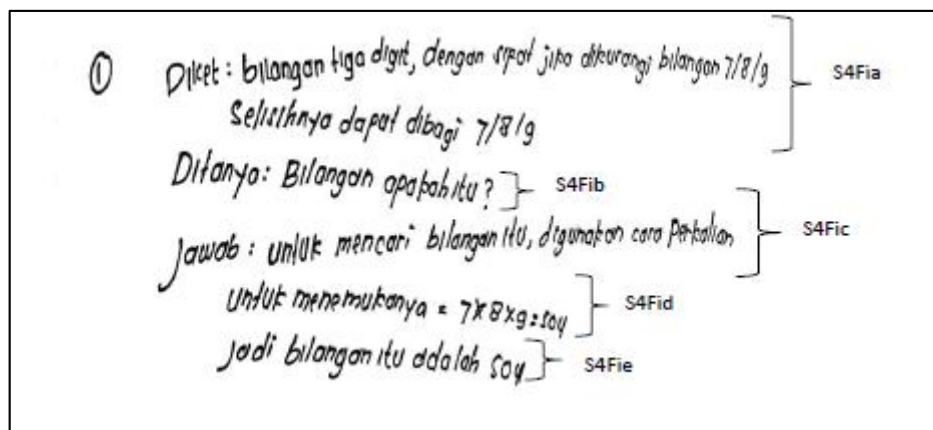 ① Diket : bilangan tiga digit, dengan sifat jika dikurangi bilangan 7/8/9 S4Fia
Selisihnya dapat dibagi 7/8/9
Ditanya : Bilangan apakah itu? S4Fib
Jawab : untuk mencari bilangan itu, digunakan cara perkalian S4Fic
untuk menemukanya = 7x8x9=504 S4Fid
Jadi bilangan itu adalah 504 S4Fie